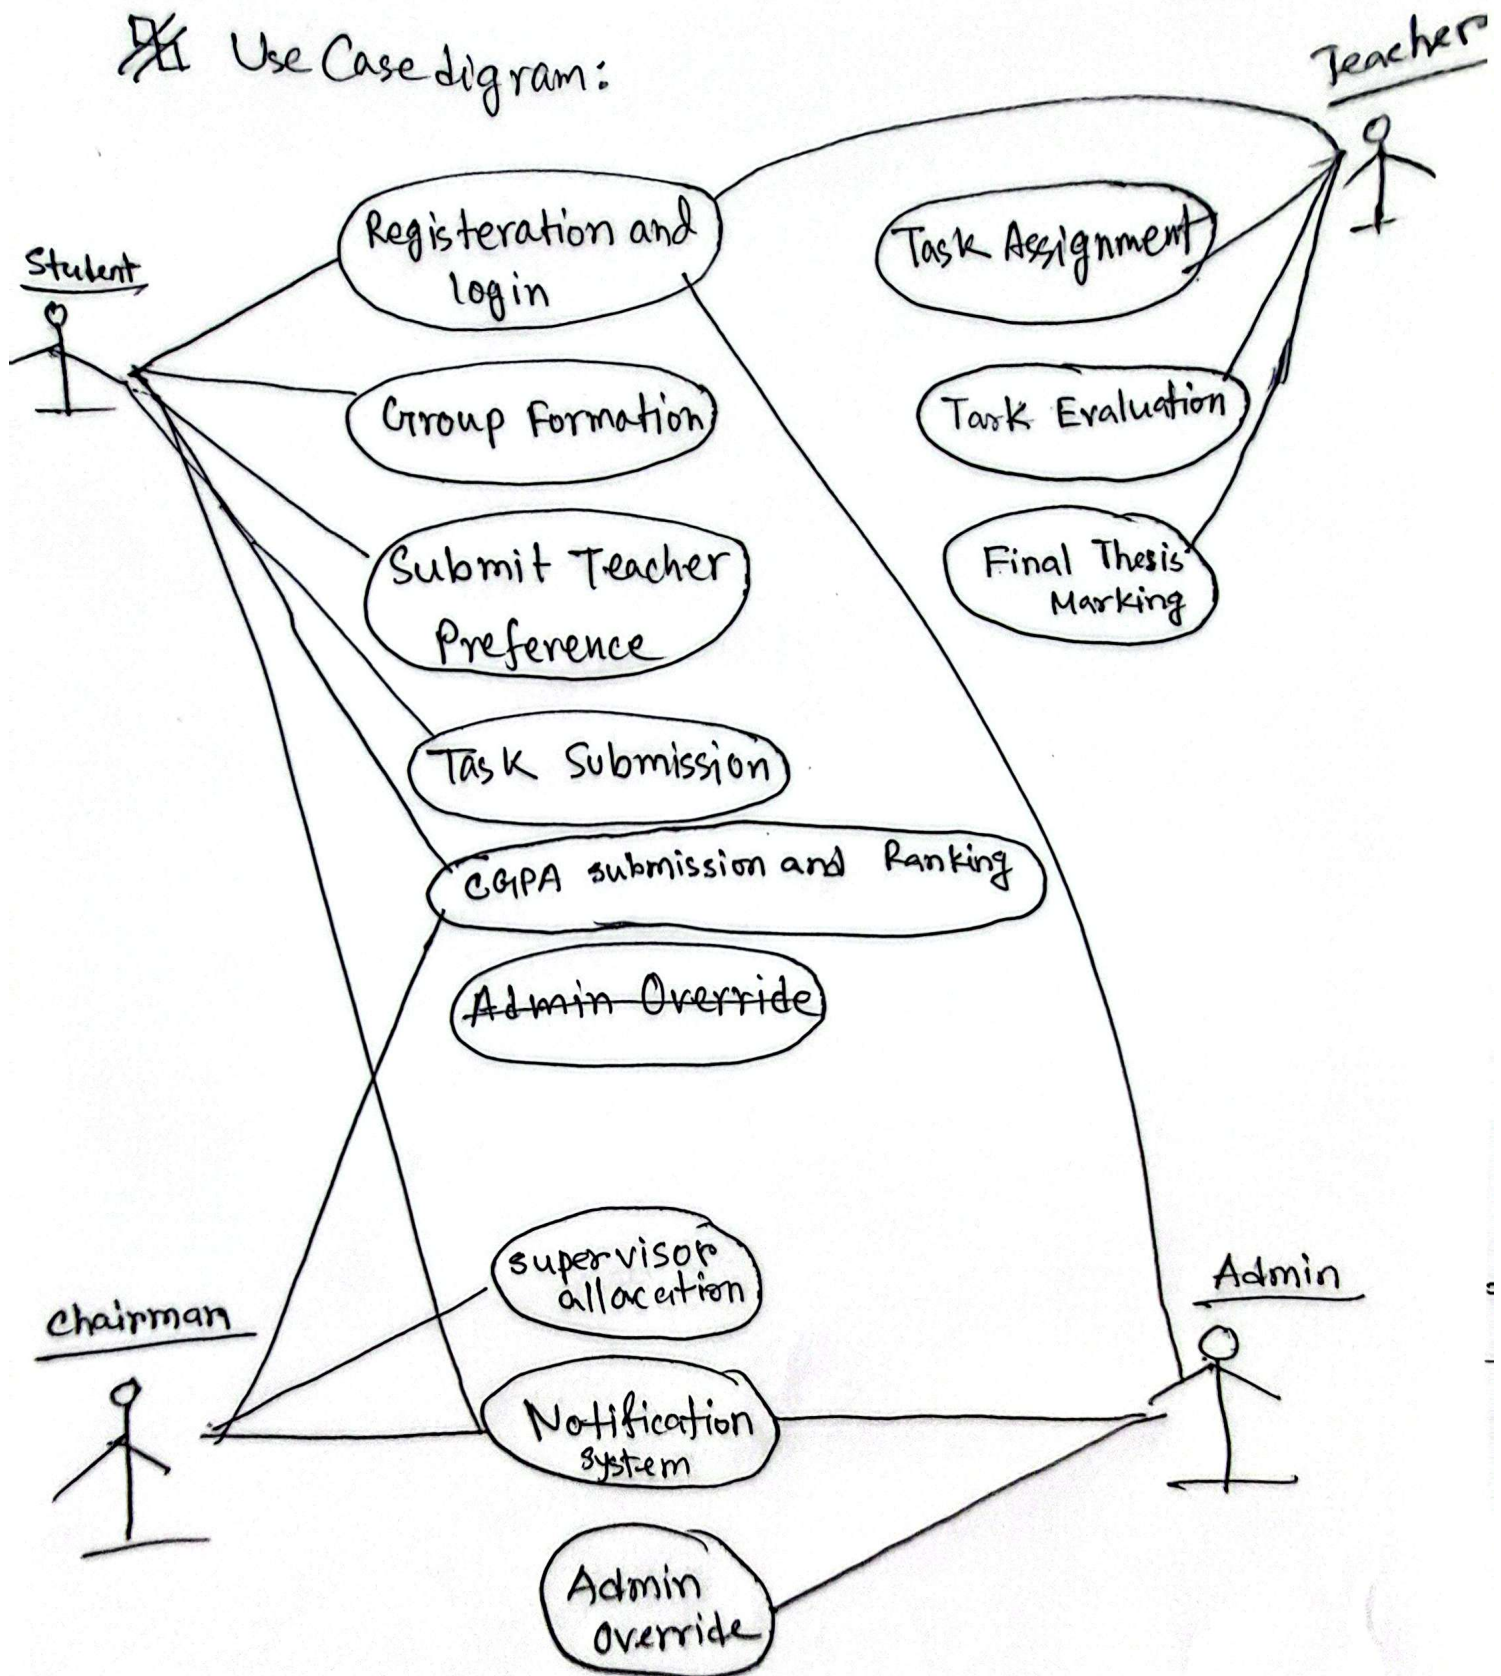 Use Case digram:
Teacher
Student
Registeration and
login
Task Assignment
Group Formation
Task Evaluation
Submit Teacher
Preference
Final Thesis
Marking
Task Submission
CGPA submission and Ranking
Admin Override
supervisor
allocation
Chairman
Admin
Notification
system
Admin
Override